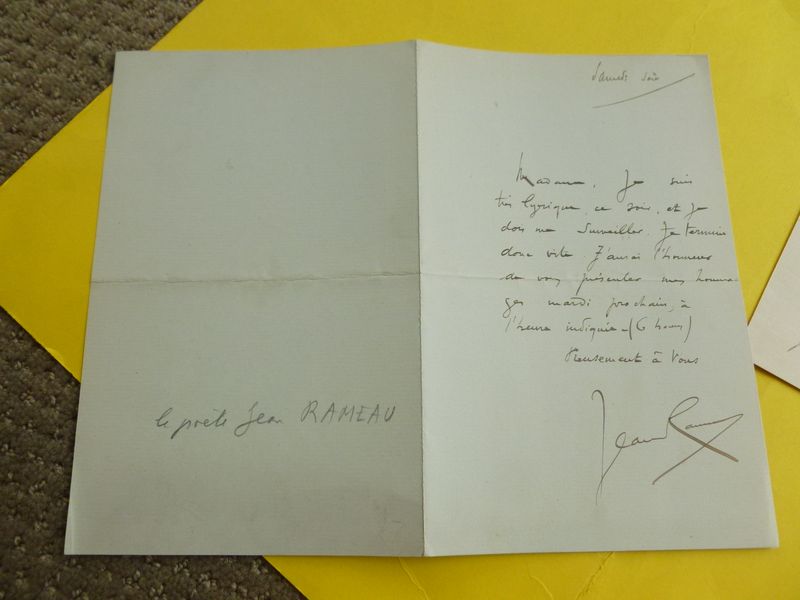 le poète Jean RAMEAU
Samedi soir
Madame, Je suis
très lyrique, ce soir, et je
dois me surveiller. Je termine
donc vite. J'aurai l'honneur
de vous présenter mes homma-
ges mardi prochain, à
l'heure indiquée – (6 heures)
à Vous
Jean Rameau